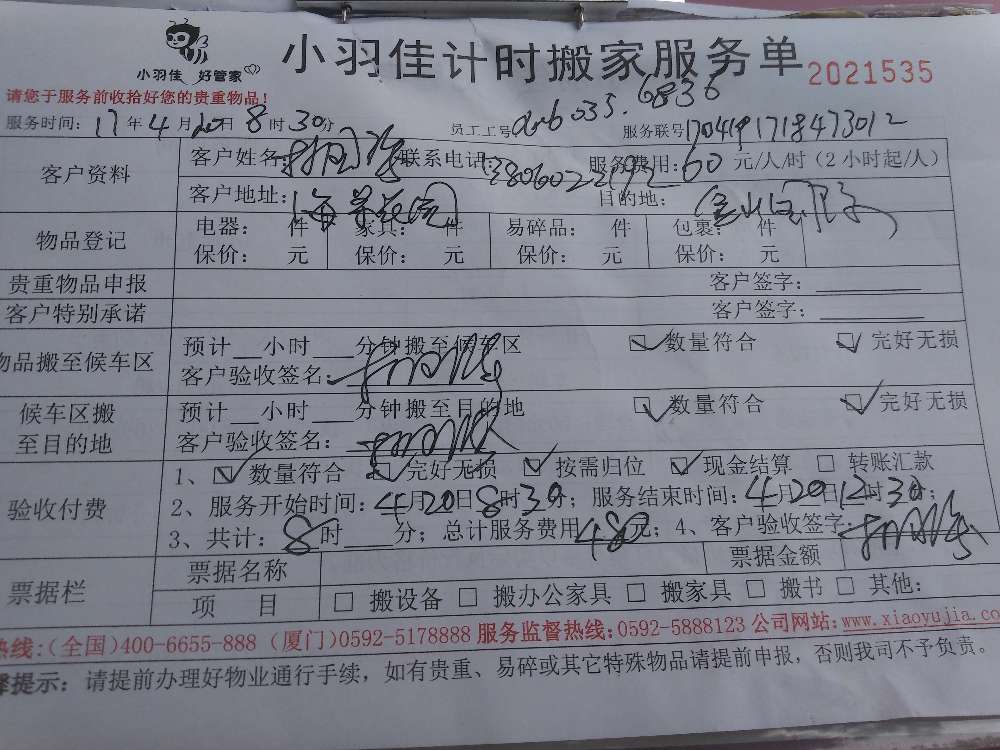 小羽佳 好管家
小羽佳计时搬家服务单 2021535
请您于服务前收拾好您的贵重物品!
服务时间: 17年4月20日8时30分 员工工号 035.6836 服务联号1704191718473012
客户资料 客户姓名: 联系电话: 服务费用: 60 元/人/时(2小时起/人)
客户地址: 海 花园 目的地: 金山
物品登记 电器: 件 家具: 件 易碎品: 件 包裹: 件
保价: 元 保价: 元 保价: 元 保价: 元
贵重物品申报 客户签字:
客户特别承诺 客户签字:
物品搬至候车区 预计__小时___分钟搬至候车区 ☑数量符合 ☑完好无损
客户验收签名:
候车区搬至目的地 预计__小时___分钟搬至目的地 ☑数量符合 ☑完好无损
客户验收签名:
验收付费 1、☑数量符合 ☑完好无损 ☑按需归位 ☑现金结算 □转账汇款
2、服务开始时间:4月20日8时30分; 服务结束时间:4月20日12时30分;
3、共计:8时___分; 总计服务费用480元; 4、客户验收签字:
票据栏 票据名称 票据金额
项 目 □ 搬设备 □ 搬办公家具 □ 搬家具 □ 搬书 □ 其他:
热线:(全国)400-6655-888 (厦门)0592-5178888 服务监督热线:0592-5888123 公司网站:www.xiaoyujia.co
提示: 请提前办理好物业通行手续, 如有贵重、易碎或其它特殊物品请提前申报, 否则我司不予负责。